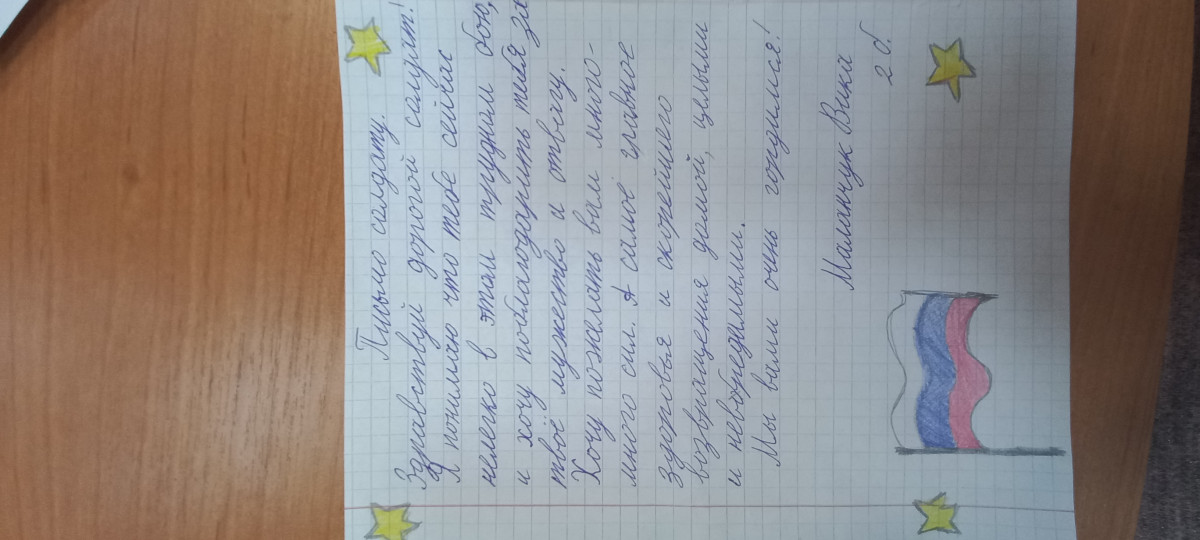 Письмо солдату.
Здравствуй дорогой солдат!
Я понимаю что тебе сейчас
нелегко в этом трудном бою,
и хочу поблагодарить тебя за
твоё мужество и отвагу.
Хочу пожелать вам много-
много сил. А самое главное
здоровья и скорейшего
возвращения домой, целыми
и невобредимыми.
Мы вами очень гордимся!
Маланчук Вика
2 б.